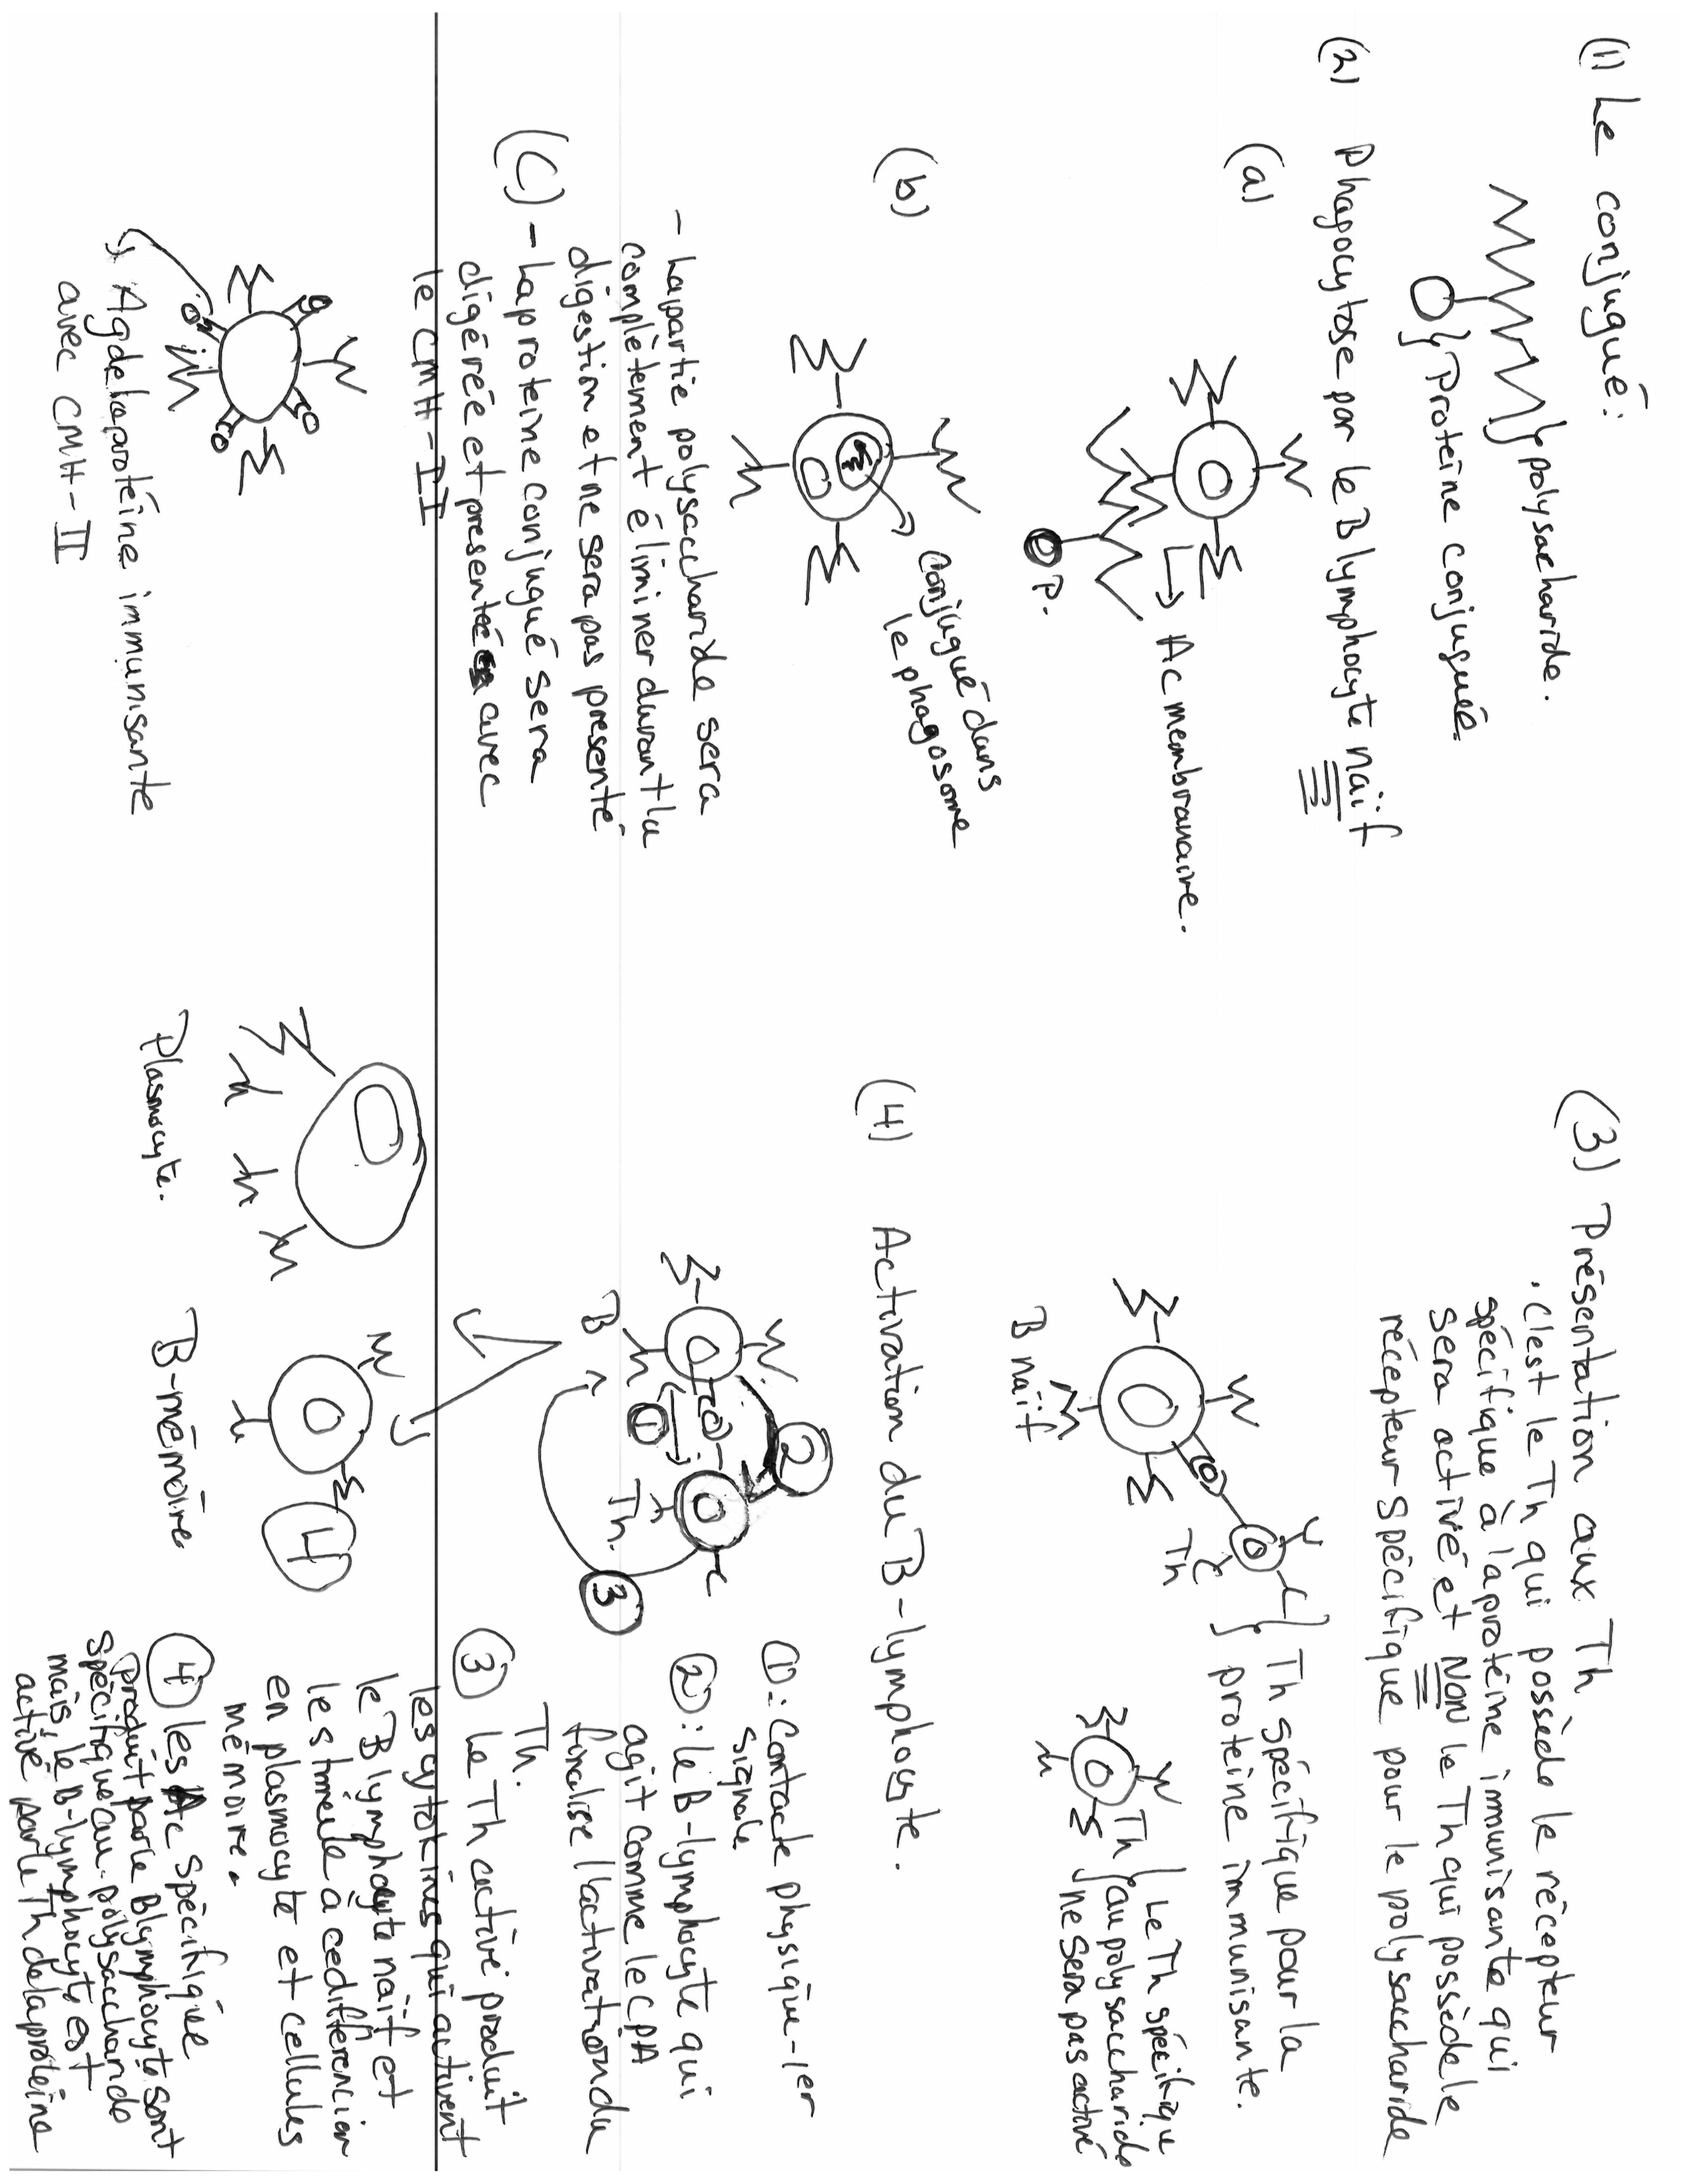 (1) Le conjugué:
} polysaccharide.
} Protéine conjuguée.
(2) Phagocytose par le B lymphocyte naïf
(a)
Ac membranaire.
P.
(b)
conjugué dans
le phagosome
- La partie polysaccharide sera
complètement éliminer durant la
digestion et ne sera pas presenté
(C) - La proteine conjugué sera
digérée et presentée avec
le CMH-II
Ag de la protéine immunisante
avec CMH-II
(3) Présentation aux Th
. C'est le Th qui possède le récepteur
spécifique à la protéine immunisante qui
sera activé et Non le Th qui possède le
récepteur spécifique pour le polysaccharide
B naïf
Th
} Th spécifique pour la
proteine immunisante.
Th
} Le Th spécifique
au polysaccharide
ne sera pas activé
(4) Activation du B-lymphocyte.
B
1
2
Th.
3
1: Contacte physique - 1er
signale
2: le B-lymphocyte qui
agit comme le CPA
finalise l'activation du
Th.
3 Le Th activé produit
les cytokines qui activent
le B lymphocyte naïf et
le stimule à ce différencier
en plasmocyte et cellules
mémoire.
4 les Ac spécifique
produit par le B lymphocyte sont
spécifique au polysaccharide
mais, le B-lymphocyte est
activé par le Th de la protéine
Plasmocyte.
B-mémoire
4